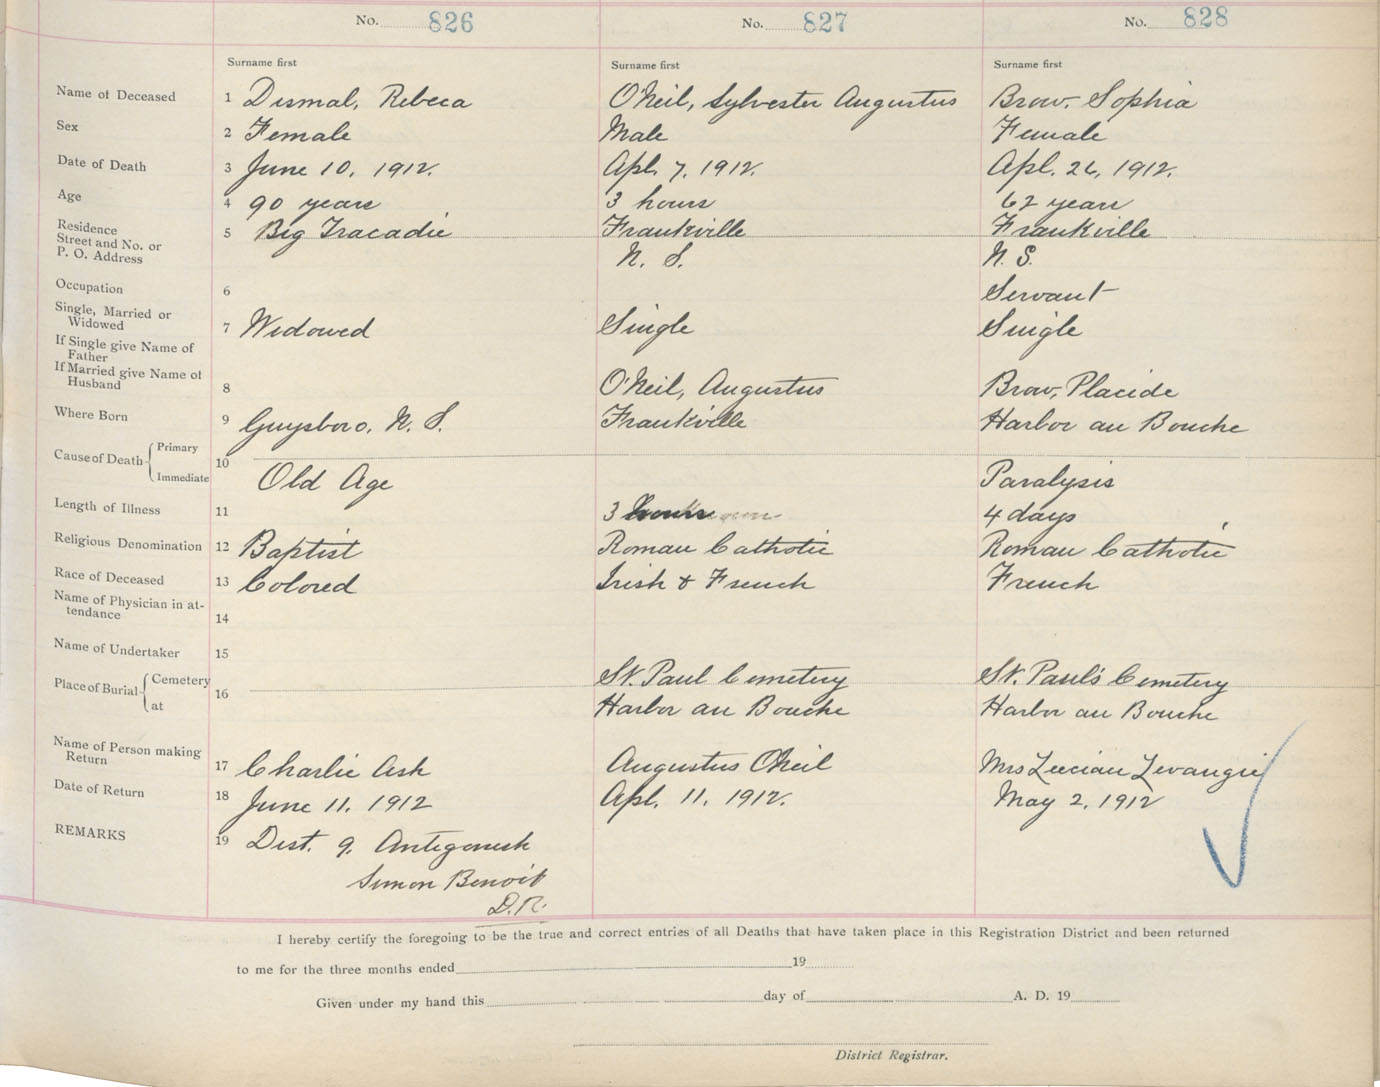 No. 826 No. 827 No. 828
Surname first Surname first Surname first
Name of Deceased 1 Dismal, Rebeca O'Neil, Sylvester Augustus Brow, Sophia
Sex 2 Female Male Female
Date of Death 3 June 10, 1912. Apl. 7, 1912. Apl. 26, 1912.
Age 4 90 years 3 hours 62 years
Residence
Street and No. or
P. O. Address 5 Big Tracadie Frankville Frankville
N. S. N. S.
Occupation 6 Servant
Single, Married or
Widowed 7 Widowed Single Single
If Single give Name of
Father
If Married give Name of
Husband 8 O'Neil, Augustus Brow, Placide
Where Born 9 Guysboro, N. S. Frankville Harbor au Bouche
Cause of Death Primary
Immediate 10 Old Age Paralysis
Length of Illness 11 3 hours 4 days
Religious Denomination 12 Baptist Roman Catholic Roman Catholic
Race of Deceased 13 Colored Irish & French French
Name of Physician in at-
tendance 14
Name of Undertaker 15
Place of Burial Cemetery
at 16 St. Paul Cemetery St. Paul's Cemetery
Harbor au Bouche Harbor au Bouche
Name of Person making
Return 17 Charlie Ash Augustus O'Neil Mrs Lucian Levangie
Date of Return 18 June 11, 1912 Apl. 11, 1912. May 2, 1912
REMARKS 19 Dist. 9. Antigonish
Simon Benoit
D.R.
I hereby certify the foregoing to be the true and correct entries of all Deaths that have taken place in this Registration District and been returned
to me for the three months ended 19
Given under my hand this day of A. D. 19
District Registrar.